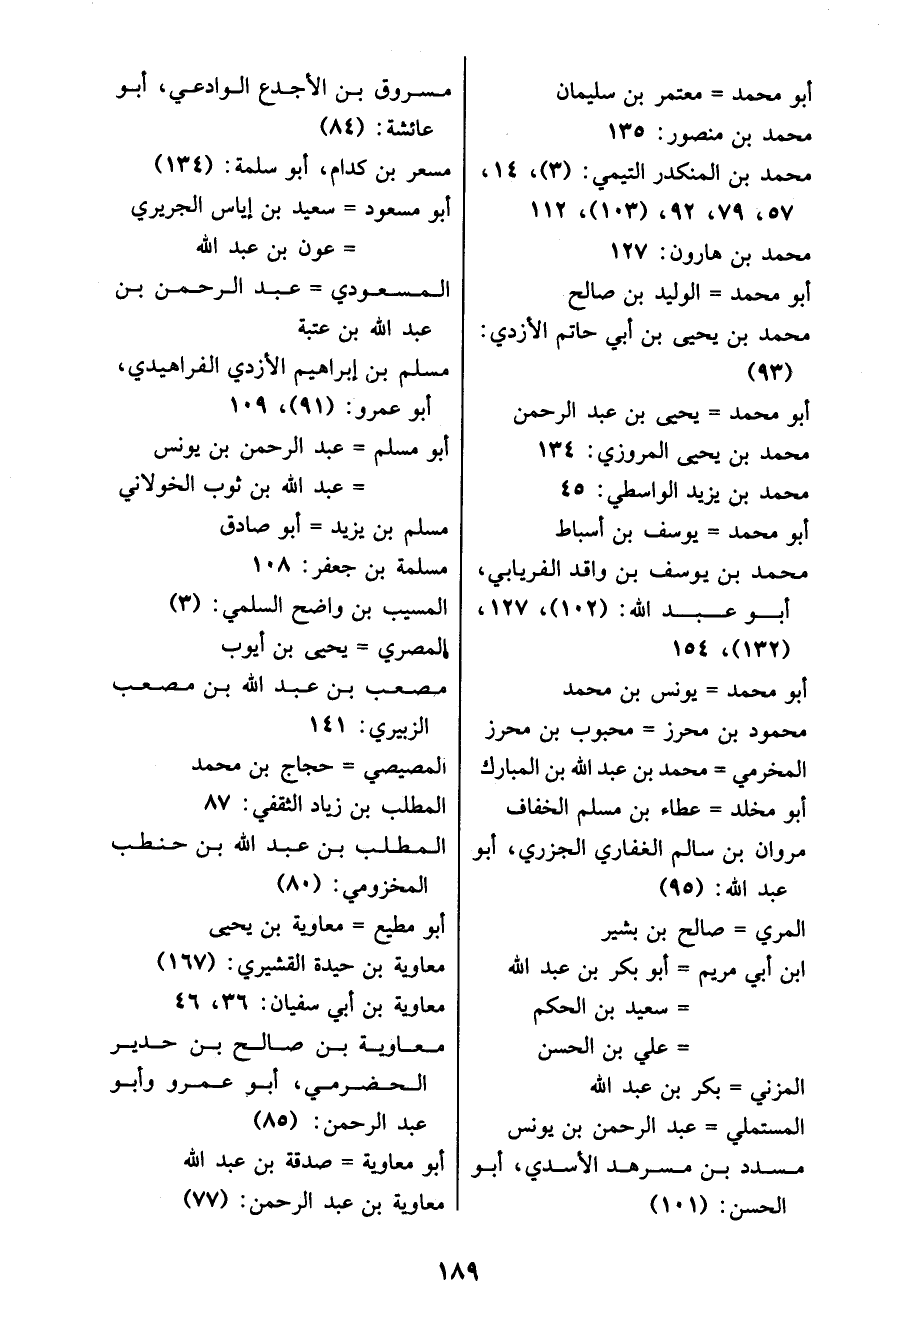 أبو محمد = معتمر بن سليمان
محمد بن منصور: ١٣٥
محمد بن المنكدر التيمي: (٣)، ١٤،
٥٧، ٧٩، ٩٢، (١٠٣)، ١١٢
محمد بن هارون: ١٢٧
أبو محمد = الوليد بن صالح
محمد بن يحيى بن أبي حاتم الأزدي:
(٩٣)
أبو محمد = يحيى بن عبد الرحمن
محمد بن يحيى المروزي: ١٣٤
محمد بن يزيد الواسطي: ٤٥
أبو محمد = يوسف بن أسباط
محمد بن يوسف بن واقد الفريابي،
أبو عبد الله: (١٠٢)، ١٢٧،
(١٣٢)، ١٥٤
أبو محمد = يونس بن محمد
محمود بن محرز = محبوب بن محرز
المخرمي = محمد بن عبد الله بن المبارك
أبو مخلد = عطاء بن مسلم الخفاف
مروان بن سالم الغفاري الجزري، أبو
عبد الله: (٩٥)
المري = صالح بن بشير
ابن أبي مريم = أبو بكر بن عبد الله
= سعيد بن الحكم
= علي بن الحسن
المزني = بكر بن عبد الله
المستملي = عبد الرحمن بن يونس
مسدد بن مسرهد الأسدي، أبو
الحسن: (١٠١)
مسروق بن الأجدع الوادعي، أبو
عائشة: (٨٤)
مسعر بن كدام، أبو سلمة: (١٣٤)
أبو مسعود = سعيد بن إياس الجريري
= عون بن عبد الله
المسعودي = عبد الرحمن بن
عبد الله بن عتبة
مسلم بن إبراهيم الأزدي الفراهيدي،
أبو عمرو: (٩١)، ١٠٩
أبو مسلم = عبد الرحمن بن يونس
= عبد الله بن ثوب الخولاني
مسلم بن يزيد = أبو صادق
مسلمة بن جعفر: ١٠٨
المسيب بن واضح السلمي: (٣)
المصري = يحيى بن أيوب
مصعب بن عبد الله بن مصعب
الزبيري: ١٤١
المصيصي = حجاج بن محمد
المطلب بن زياد الثقفي: ٨٧
المطلب بن عبد الله بن حنطب
المخزومي: (٨٠)
أبو مطيع = معاوية بن يحيى
معاوية بن حيدة القشيري: (١٦٧)
معاوية بن أبي سفيان: ٣٦، ٤٦
معاوية بن صالح بن حدير
الحضرمي، أبو عمرو وأبو
عبد الرحمن: (٨٥)
أبو معاوية = صدقة بن عبد الله
معاوية بن عبد الرحمن: (٧٧)
١٨٩